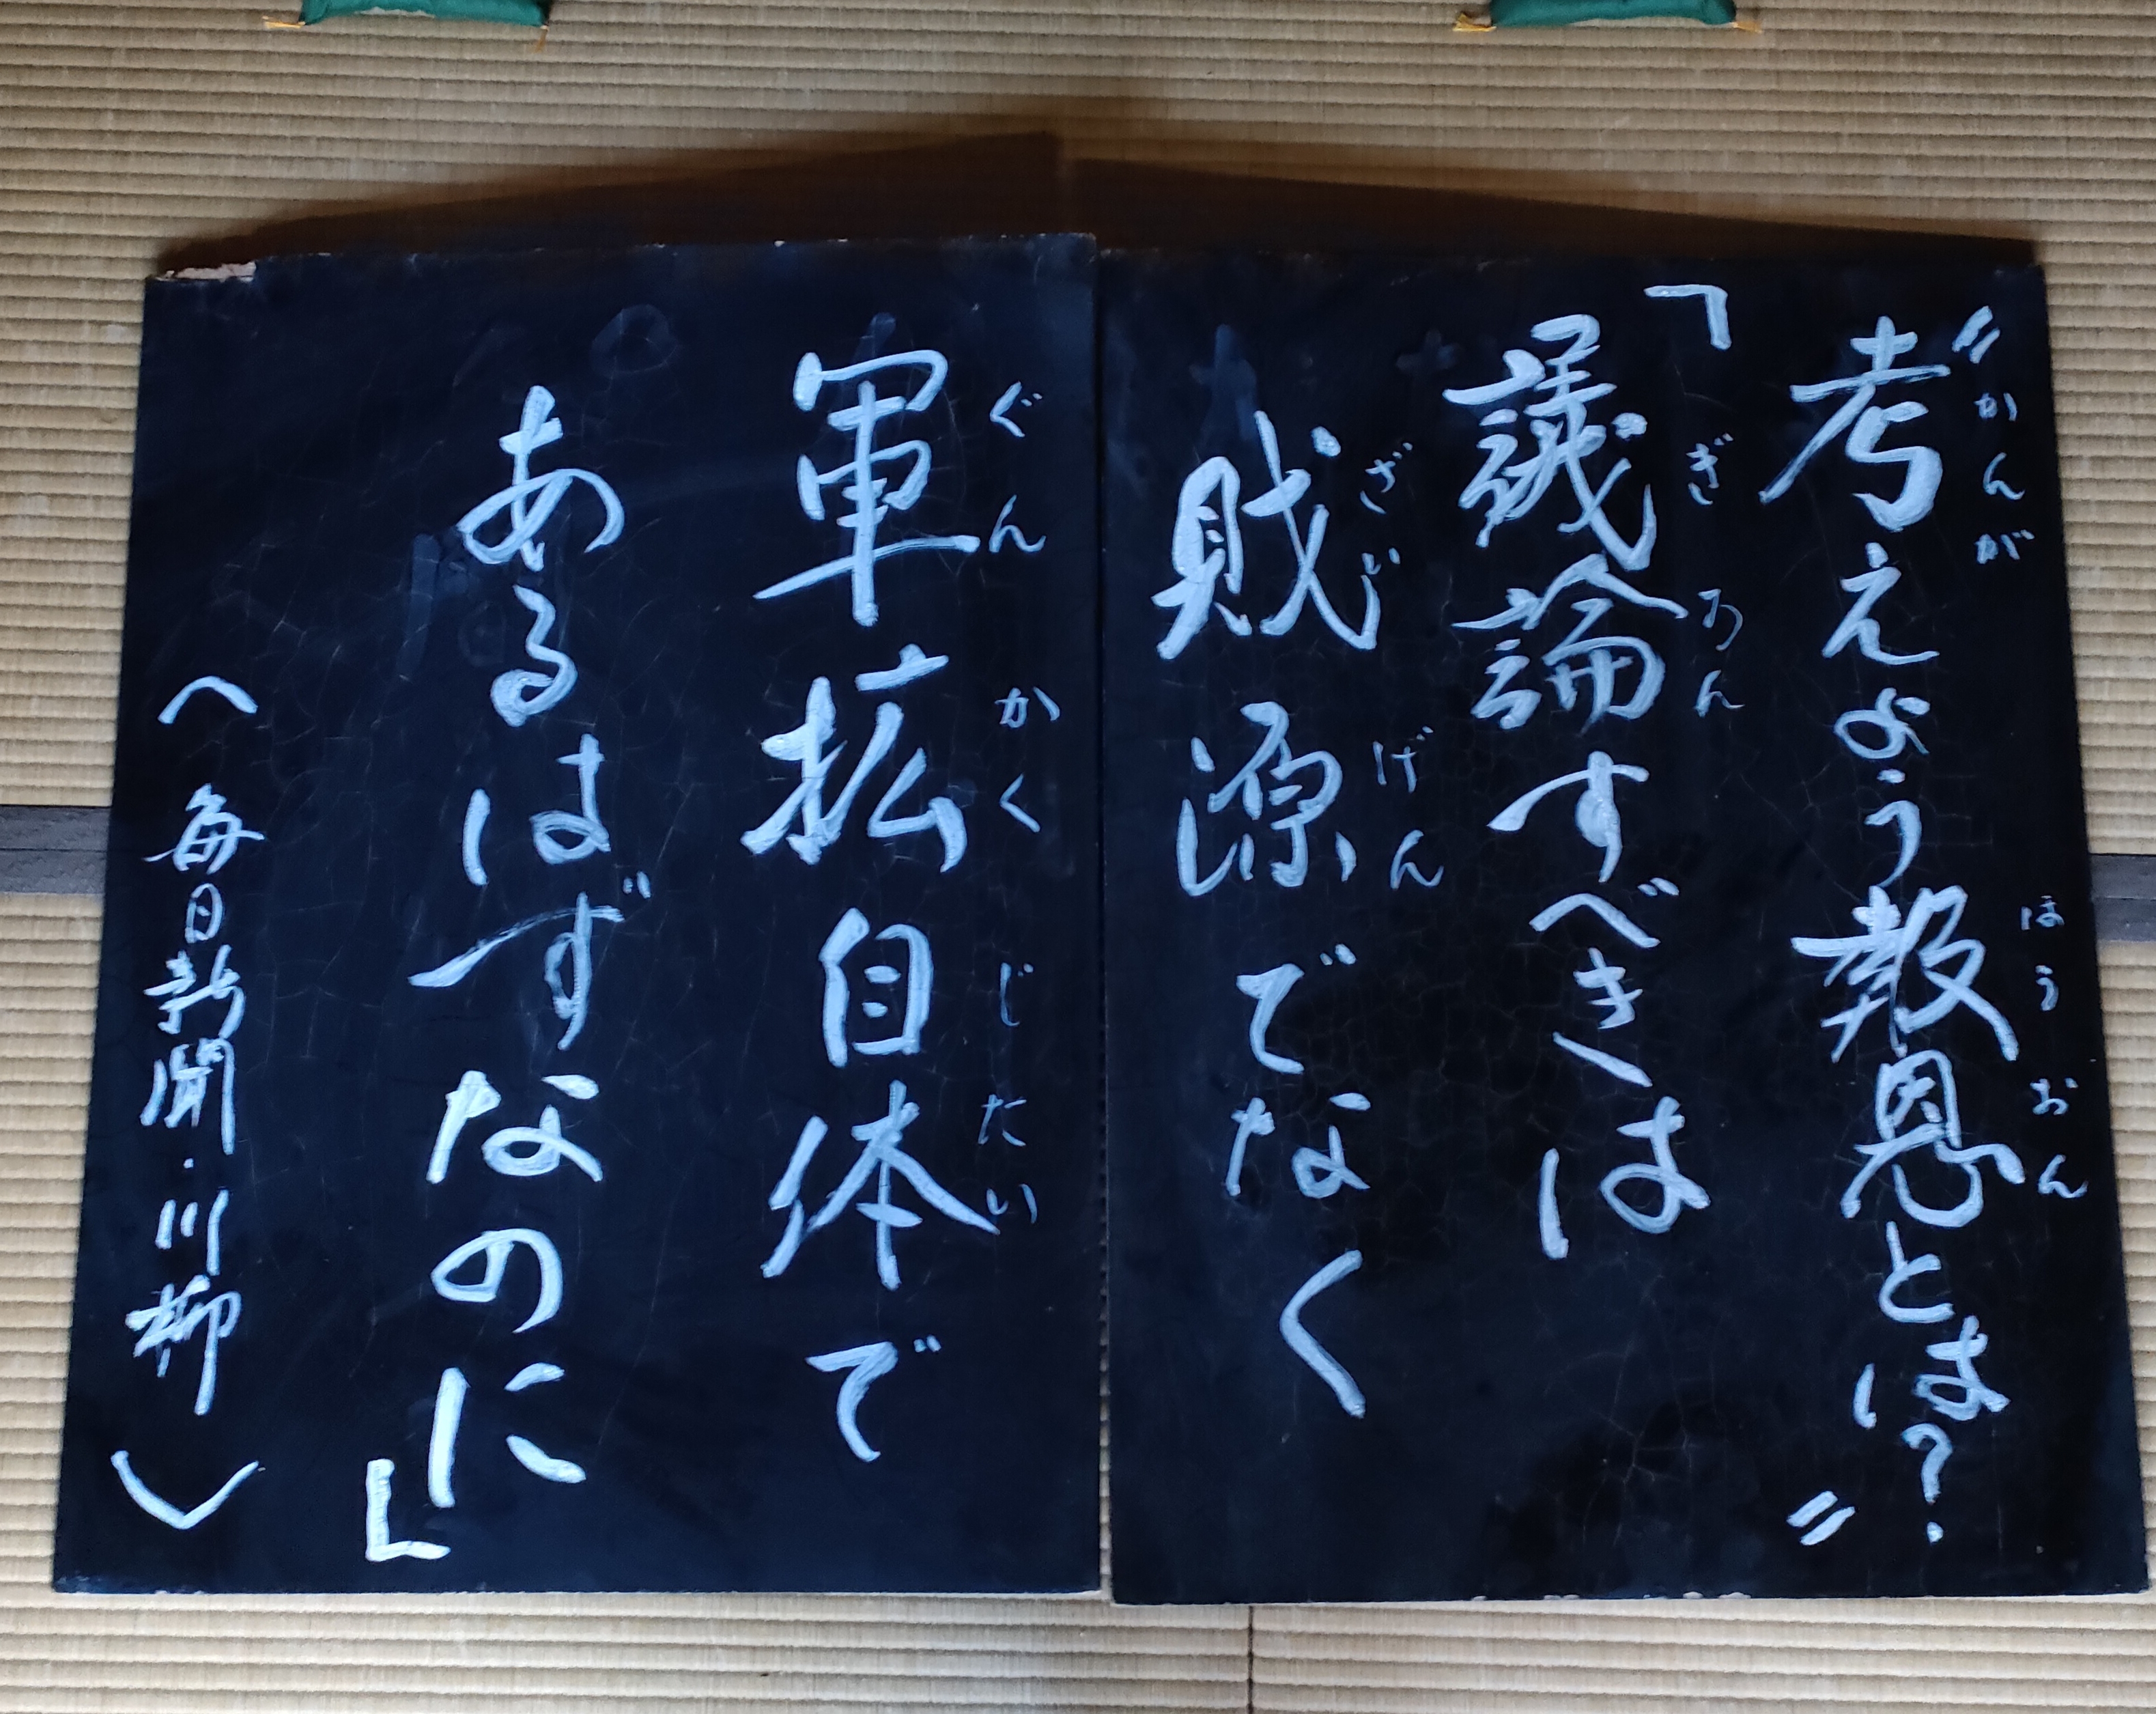 〃かんが ほうおん
考えよう報恩とは?〃
ぎろん
「議論すべきは
ざいげん
財源でなく
ぐんかくじたい
軍拡自体で
あるはずなのに」
〈毎日新聞・川柳〉